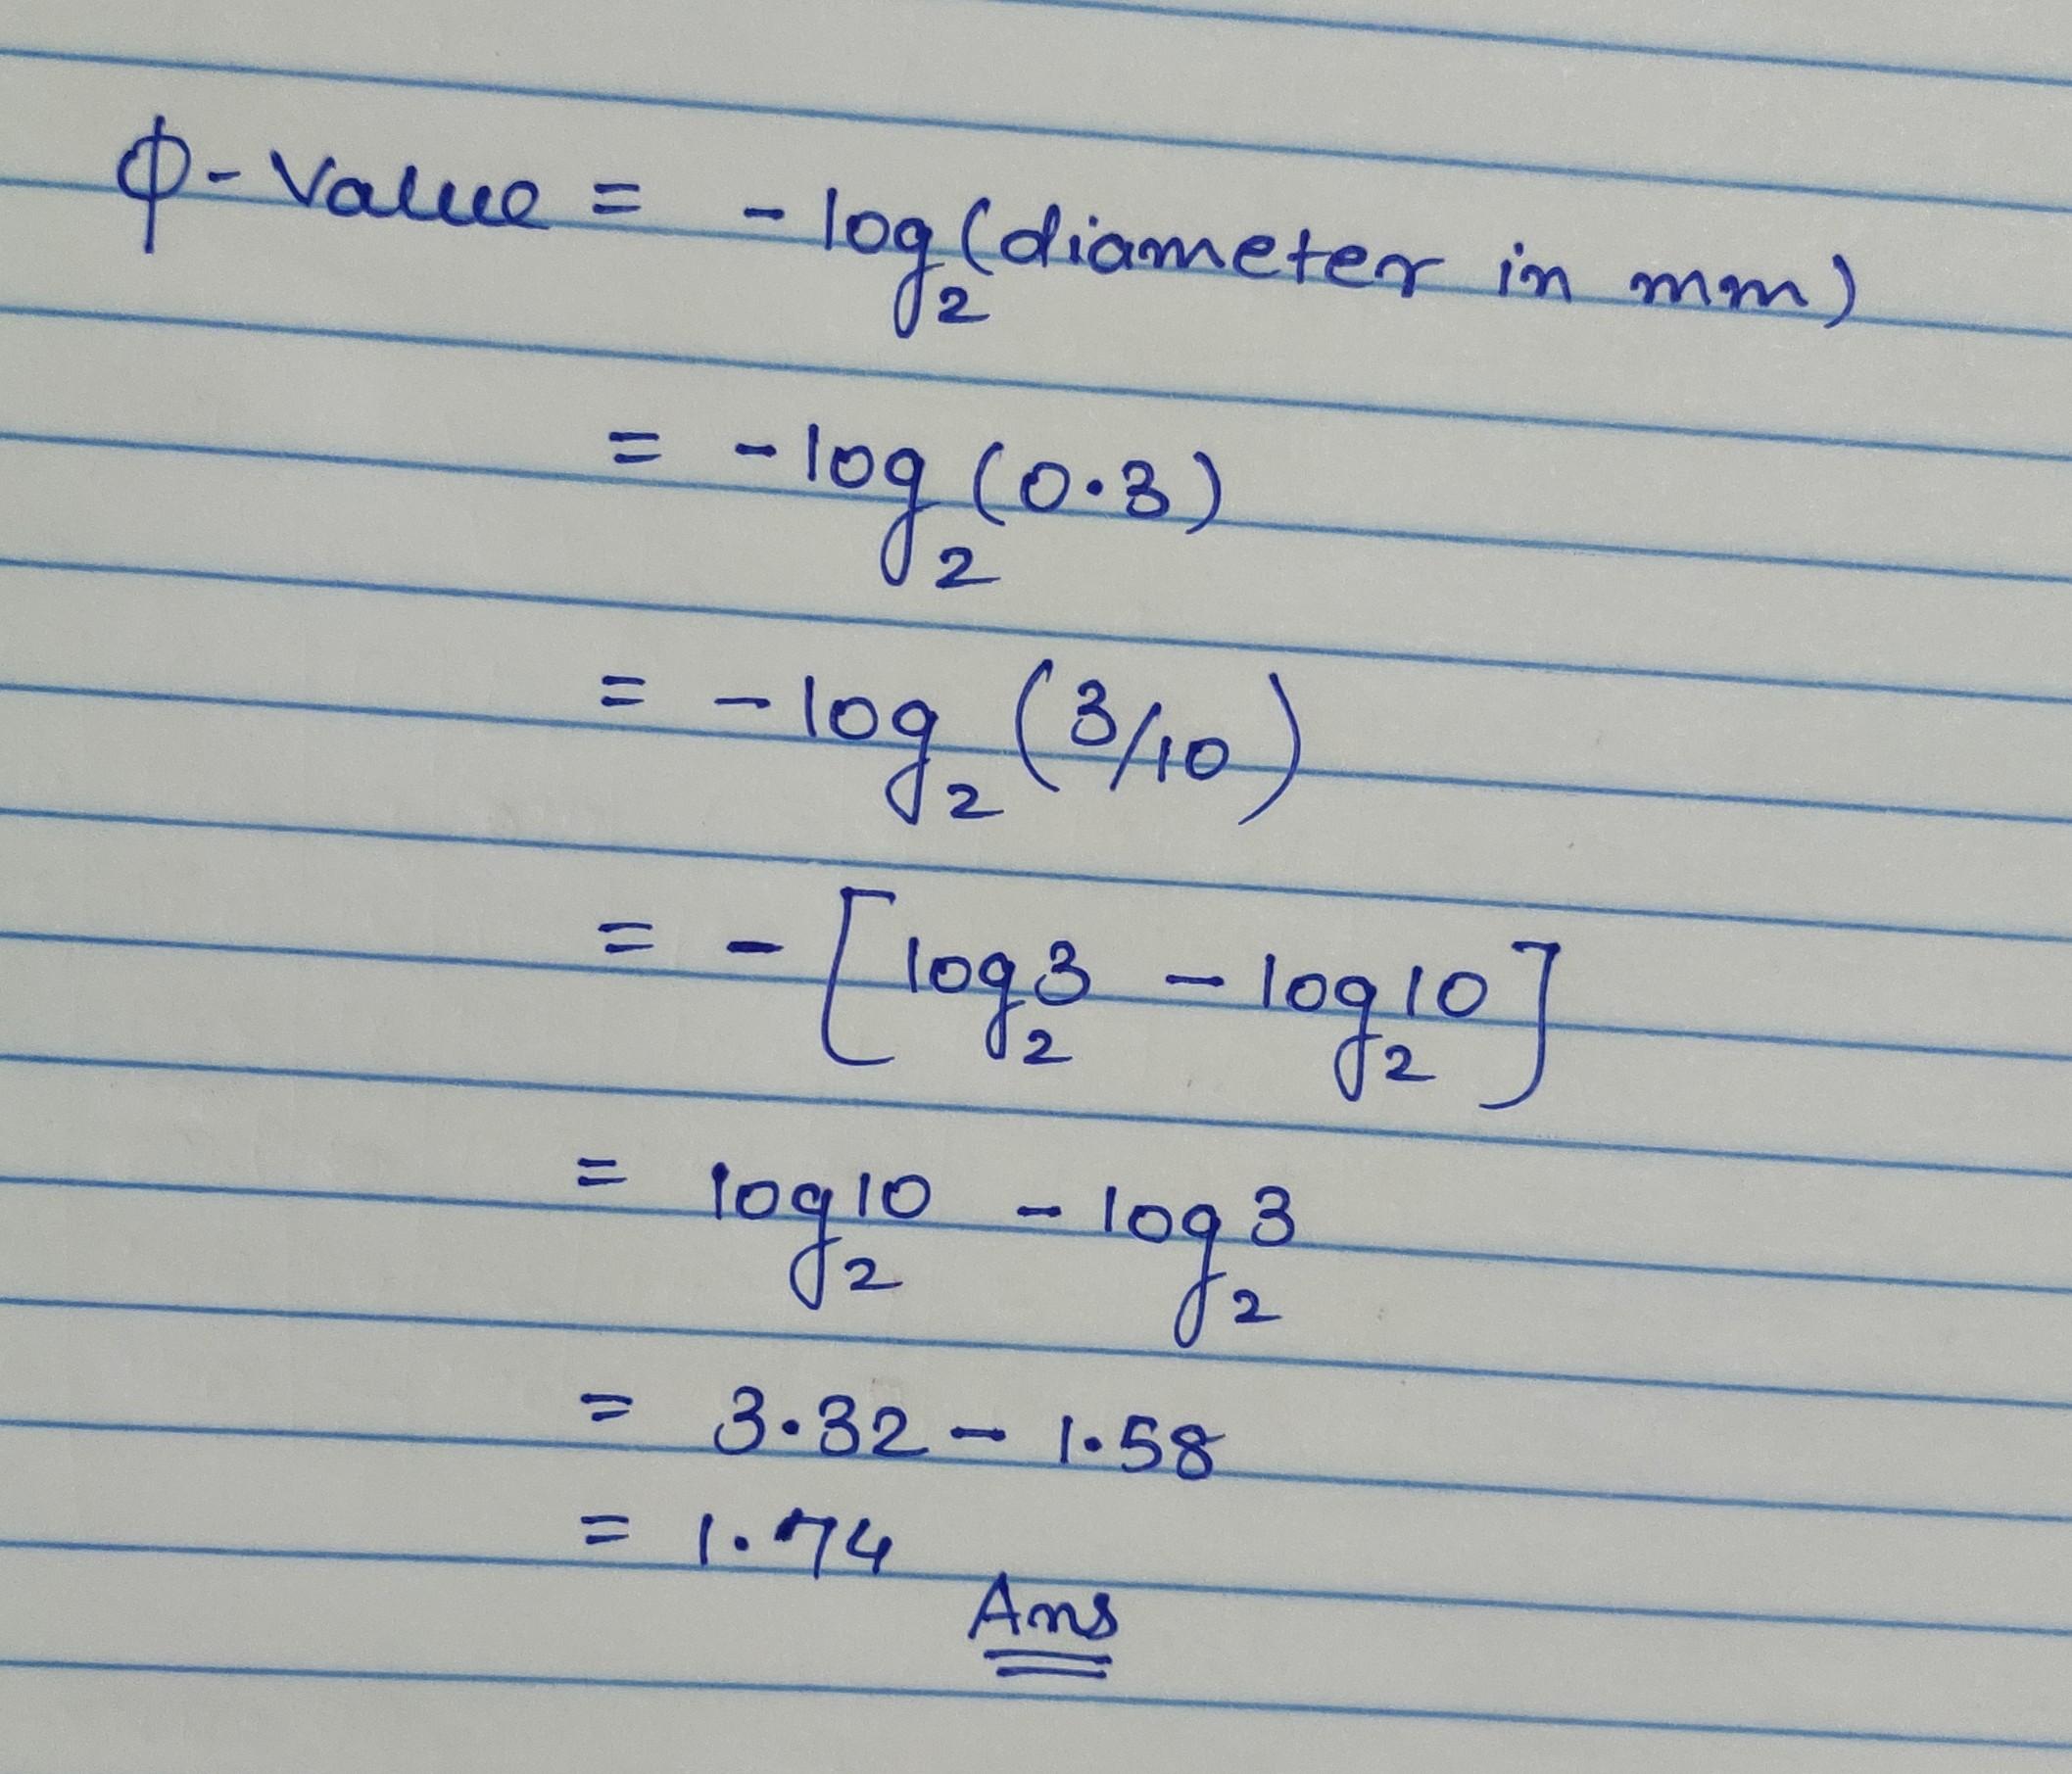 ϕ-Value = -log₂(diameter in mm)
= -log₂(0.3)
= -log₂(3/10)
= -[log₂3 - log₂10]
= log₂10 - log₂3
= 3.32 - 1.58
= 1.74
Ans